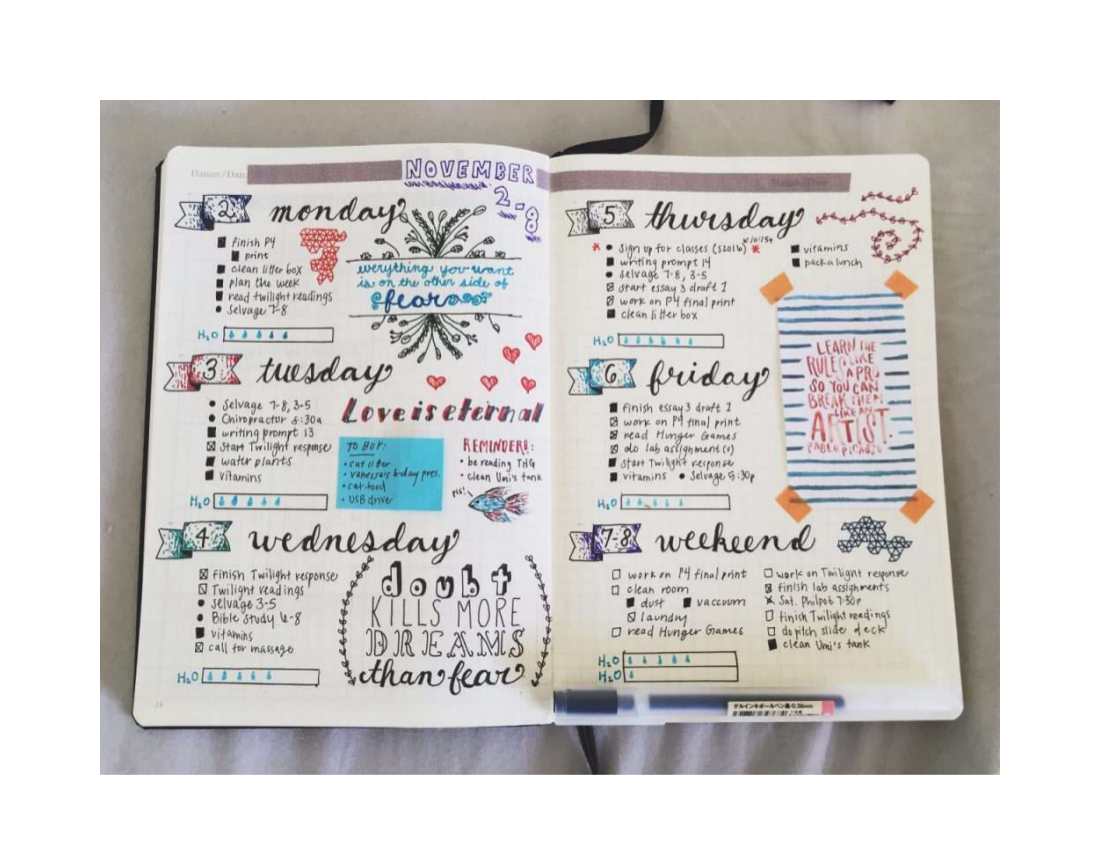 Datum / Date
NOVEMBER
2-8
2 monday
finish P4
print
clean litter box
plan the week
read twilight readings
Selvage 7-8
H₂O
everything you want
is on the other side of
fear
3 tuesday
Selvage 7-8, 3-5
Chiropractor 8:30a
writing prompt 13
start Twilight response
water plants
vitamins
H₂O
Love is eternal
TO BUY:
• cat litter
• vanessa's b-day pres.
• cat food
• USB drive
REMINDERS:
• be reading THG
• clean Umi's tank
4 wednesday
finish Twilight response
Twilight readings
Selvage 3-5
Bible Study 6-8
vitamins
call for massage
H₂O
doubt
KILLS MORE
DREAMS
than fear
24
5 thursday
sign up for classes (S2016)
writing prompt 14
selvage 7-8, 3-5
start essay 3 draft 2
work on P4 final print
clean litter box
vitamins
pack a lunch
H₂O
LEARN THE
RULES LIKE
A PRO
SO YOU CAN
BREAK THEM
LIKE AN
ARTIST.
PABLO PICASSO
6 friday
finish essay 3 draft 2
work on P4 final print
read Hunger Games
do lab assignment(s)
start Twilight response
vitamins • Selvage 5:30p
H₂O
7-8 weekend
work on P4 final print
clean room
dust vaccuum
laundry
read Hunger Games
work on Twilight response
finish lab assignments
Sat. Philpot 7:30p
finish Twilight readings
do pitch slide deck
clean Umi's tank
H₂O
H₂O
ゲルインキボールペン 0.38mm